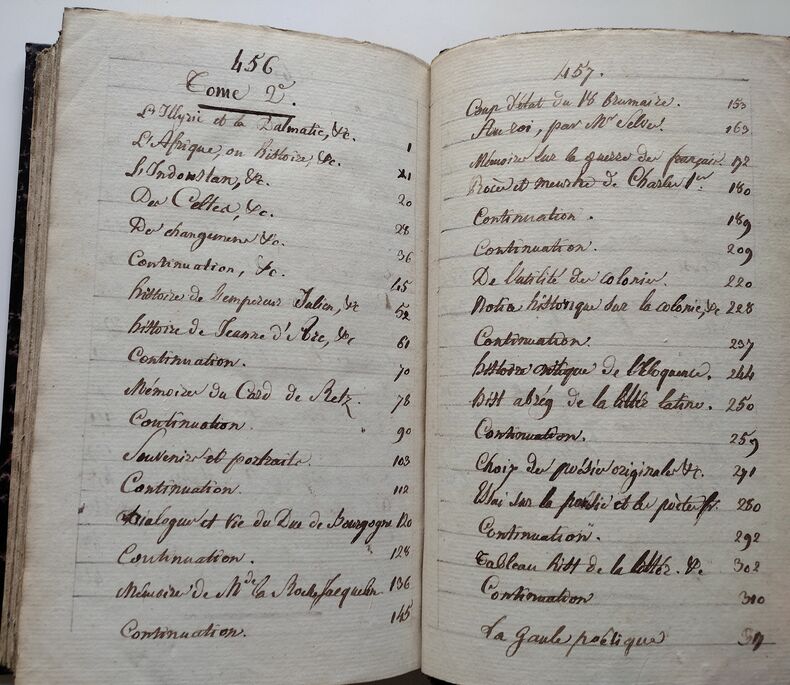 456
Tome 2e.
L'Illyrie et la Dalmatie, &c. 1
L'Afrique, ou histoire, &c. 11
L'Indoustan, &c. 20
Des Celtes, &c. 28
Des changemens &c. 36
Continuation, &c. 45
histoire de l'empereur Julien, &c 52
histoire de Jeanne d'Arc, &c 61
Continuation. 70
Mémoires du Card de Retz. 78
Continuation. 90
Souvenirs et portraits. 103
Continuation. 112
Dialogues et vie du Duc de Bourgogne 120
Continuation. 128
Mémoires de Mde la Rochejaquelin 136
Continuation. 145
457.
Coup d'état du 18 brumaire. 153
Au roi, par Mr Selves. 163
Mémoires sur la guerre des français. 172
Procès et meurtre de Charles 1er 180
Continuation. 189
Continuation. 209
De l'utilité des colonies. 220
Notice historique sur la colonie, &c 228
Continuation. 237
histoire critique de l'Eloquence. 244
hist abrég de la litté latine. 250
Continuation. 259
Choix des poésies originales &c. 271
Essai sur la poésie et les poètes fr. 280
Continuation. 292
Tableau hist de la littér. &c 302
Continuation 310
La Gaule poëtique